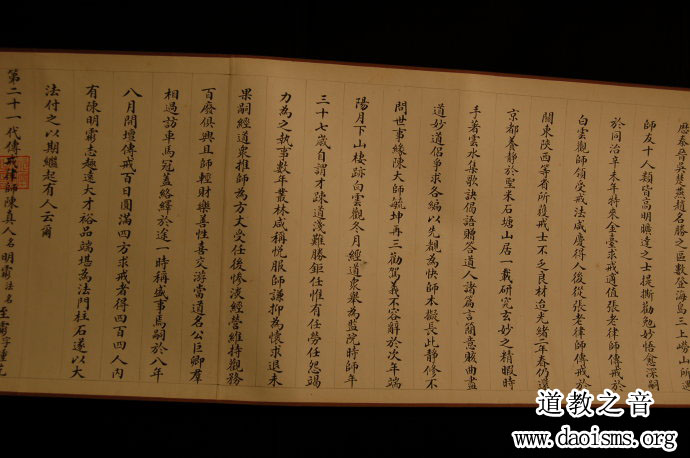 歷秦晉吳楚燕趙名勝之區數登海島三上嶗山所
師友十人類皆高明曠達之士提撕勸勉妙悟愈深嗣
於同治辛未年特來金臺求戒適值張老律師傳戒於
白雲觀師領受戒法咸慶得人後從張老律師傳戒於
關東陝西等省所獲戒士不乏良材迨光緒二年春仍還
京都養靜於聖米石塘山居一載研究玄妙之精暇時
手著雲水集歌訣偈語贈答道人諸篇言簡意賅曲盡
道妙道侶爭求各編以先覩為快師本擬長此靜修不
問世事緣陳大師毓坤再三勸駕義不容辭於次年端
陽月下山棲跡白雲觀冬月經道衆舉為監院時師年
三十七歲自謂才疎道淺難勝鉅任惟有任勞任怨竭
力為之執事數年叢林咸稱悅服師謙抑為懷求退未
果嗣經道衆推師為方丈受任後慘淡經營維持觀務
百廢俱興且師輕財樂善性喜交游當道名公巨卿羣
相過訪車馬冠蓋絡繹於途一時稱盛事馬嗣於八年
八月開壇傳戒百日圓滿四方求戒者得四百四人內
有陳明霦志趣遠大才裕品端堪為法門柱石遂以大
法付之以期繼起有人云爾
第二十一代傳戒律師陳真人名明霦法名至霦字
道教之音
www.daoisms.org